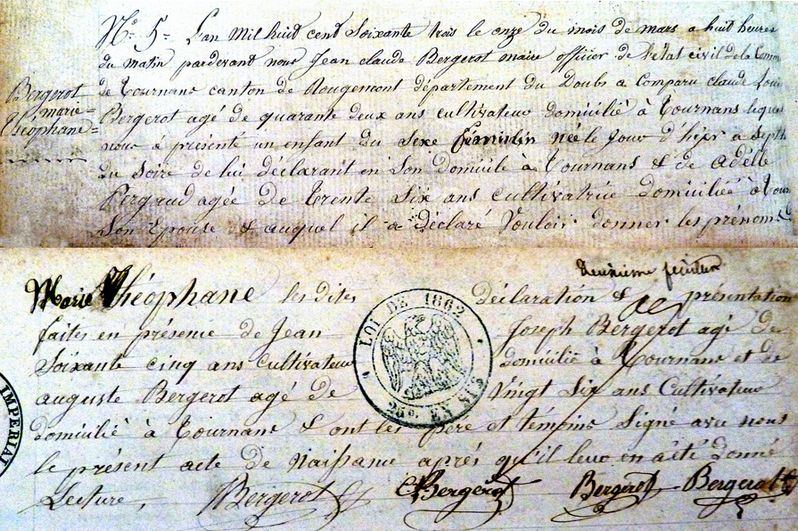 N° 5 = L'an Mil huit cent Soixante trois le onze du mois de mars a huit heures
du matin pardevant nous Jean claude Bergerot maire officier de l'etat civil de la Comm
Bergerot
marie =
Théophane =
de Tournans canton de Rougemont département du Doubs a comparu claude Loui
Bergerot agé de quarante deux ans cultivateur domicilié à Tournans lequel
nous à présenté un enfant du sexe féminin née le jour d'hier a Sept h
du Soire de lui déclarant en Son domicile à Tournans & de adèlle
Pergaud agée de Trente Six ans cultivatrice domiciliée à Tour
Son épouse & auquel il a déclaré Vouloir donner les prénoms
deuxieme feuillet
Marie Théophane les dites déclaration & présentation
faites en présence de Jean Joseph Bergerot agé de
Soixante cinq ans cultivateur domicilié à Tournans et de
auguste Bergerot agé de Vingt Six ans Cultivateur
domicilié à Tournans & ont les père et témoins Signé avec nous
le présent acte de naissance après qu'il leur en a été donné
Lecture, Bergerot Bergerot Bergerot Bergerot
LOI DE 1862
25c. EN SUS
IMPERIAL